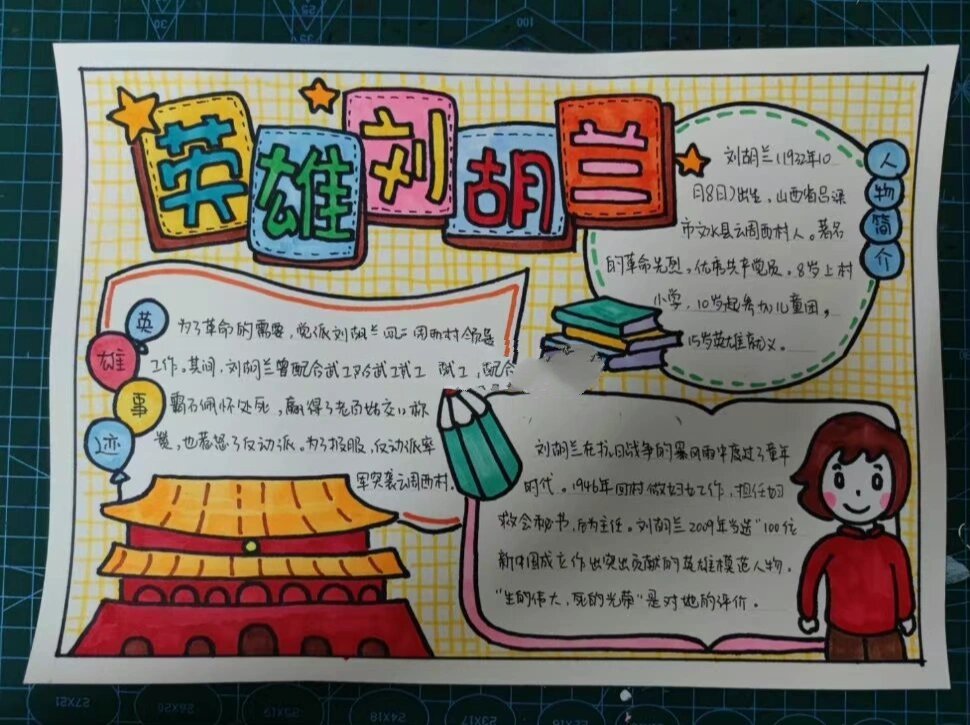 英雄刘胡兰
人物简介
刘胡兰(1932年10
月8日)出生,山西省吕梁
市文水县云周西村人。著名
的革命先烈,优秀共产党员。8岁上村
小学,10岁起参加儿童团,
15岁英雄就义。
英雄事迹
为了革命的需要,党派刘胡兰回云周西村领导
工作。其间,刘胡兰曾配合武工 武工 配合
石佩怀处死,赢得了老百姓交口称
赞,也惹怒了反动派。为了报服,反动派率
军突袭云周西村.
刘胡兰在抗日战争的暴风雨中度过了童年
时代。1946年回村做妇女工作,担任妇
救会秘书,后为主任。刘胡兰2009年当选"100位
新中国成立作出突出贡献的英雄模范人物。
"生的伟大,死的光荣"是对她的评价。